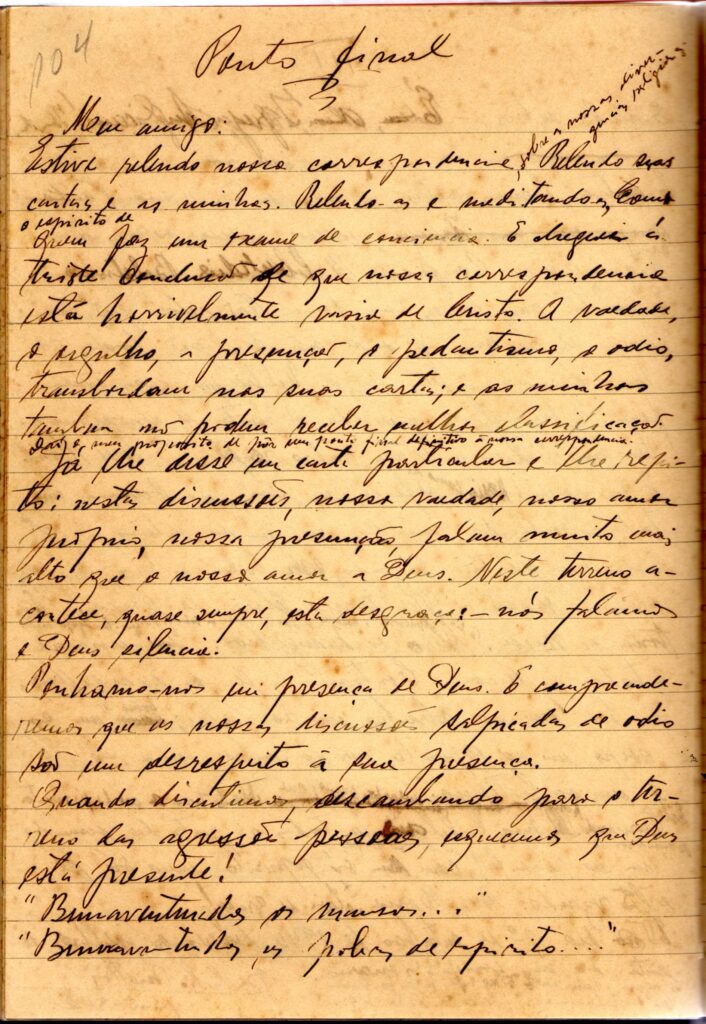 104
Ponto final
Meu amigo:
sobre as nossas diver-
gencias religiosas
Estive relendo nossa correspondencia. Relendo suas
cartas e as minhas. Relendo-as e meditando-as como
o espirito de
quem faz um exame de conciencia. E cheguei á
triste conclusão de que nossa correspondencia
está horrivelmente vasia de Cristo. A vaidade,
o orgulho, a presunção, o pedantismo, o odio,
transbordam nas suas cartas; e as minhas
tambem não podem receber melhor classificação.
Daí o meu proposito de pôr um ponto final definitivo á nossa correspondencia.
Já lhe disse em carta particular e lhe repi-
to: nestas discussões, nossa vaidade, nosso amor
próprio, nossa presunção, falam muito mais
alto que o nosso amor a Deus. Neste terreno a-
contece, quase sempre, esta desgraça: – nós falamos
e Deus silencia.
Ponhamo-nos em presença de Deus. E compreende-
remos que as nossas discussões salpicadas de odio
são um desrespeito á sua presença.
Quando discutimos, descambando para o ter-
reno das agressões pessoais, esquecemos que Deus
está presente!
"Bemaventurados os mansos..."
"Bemaventurados os pobres de espirito...."